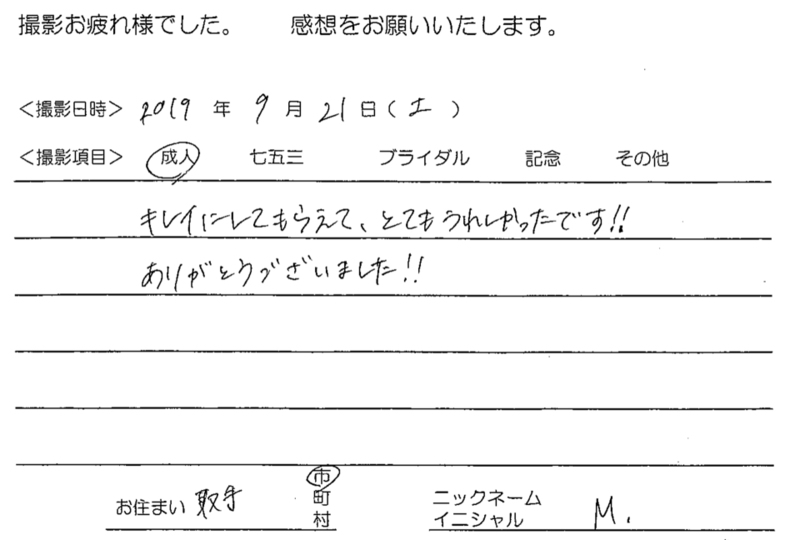 撮影お疲れ様でした。　感想をお願いいたします。
＜撮影日時＞ 2019 年 9 月 21 日（土）
＜撮影項目＞ 成人　七五三　ブライダル　記念　その他
キレイにしてもらえて、とてもうれしかったです!!
ありがとうございました!!
お住まい 取手 市 町 村
ニックネーム イニシャル M.